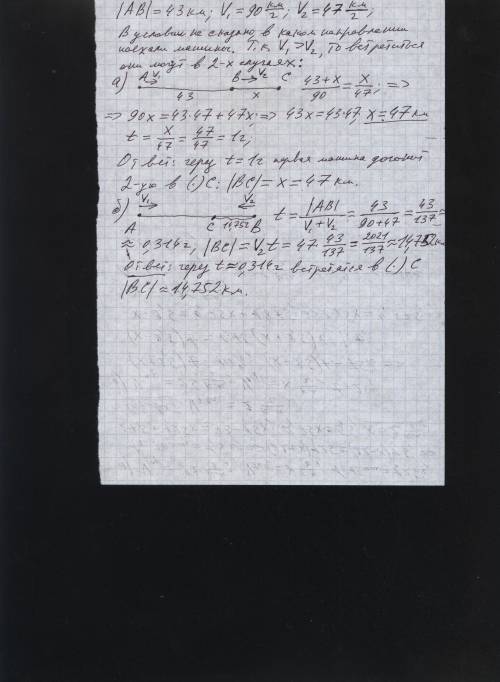 |AB| = 43 км; V₁ = 90 км/г; V₂ = 47 км/г;
В условии не сказано в каком направлении
поехали машины. Т.к. V₁ > V₂, то встретиться
они могут в 2-х случаях:
а) A V₁ B V₂ C (43+x)/90 = x/47; =>
43 x
=> 90x = 43·47 + 47x => 43x = 43·47, x = 47 км
t = x/47 = 47/47 = 1г;
Ответ: через t = 1г первая машина догонит
2-ую в (·) C: |BC| = x = 47 км.
б) V₁ V₂ t = |AB|/(V₁+V₂) = 43/(90+47) = 43/137 ≈
A C 14,752 B
≈ 0,314г, |BC| = V₂t = 47·43/137 = 2021/137 ≈ 14,752км
Ответ: через t ≈ 0,314г встретятся в (·) C
|BC| ≈ 14,752 км.